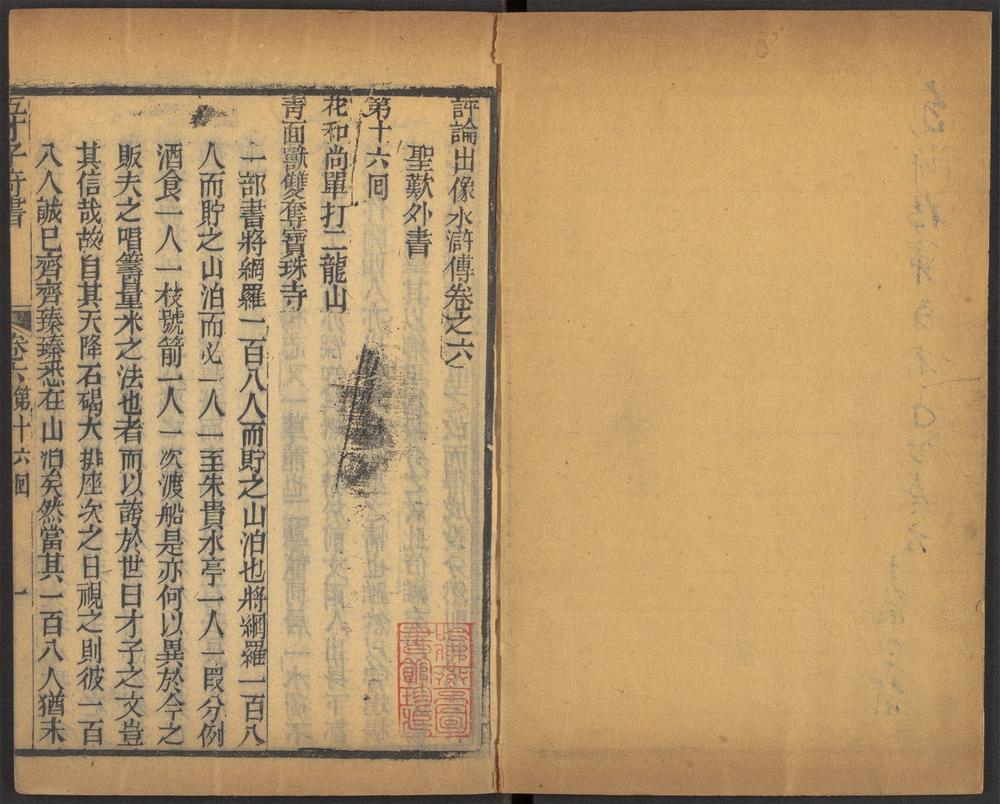 評論出像水滸傳卷之六
聖歎外書
第十六回
花和尚單打二龍山
靑面獸雙奪寶珠寺
一部書將網羅一百八人而貯之山泊也將網羅一百八
人而貯之山泊而必一人一至朱貴水亭一人一段分例
酒食一人一枝號箭一人一次渡船是亦何以異於今之
販夫之唱籌量米之法也者而以誇於世曰才子之文豈
其信哉故自其天降石碣大排座次之日視之則彼一百
八人誠已齊齊臻臻悉在山泊矣然當其一百八人猶未
五才子奇書
卷六第十六回
一
哈佛燕京圖
書館珍藏